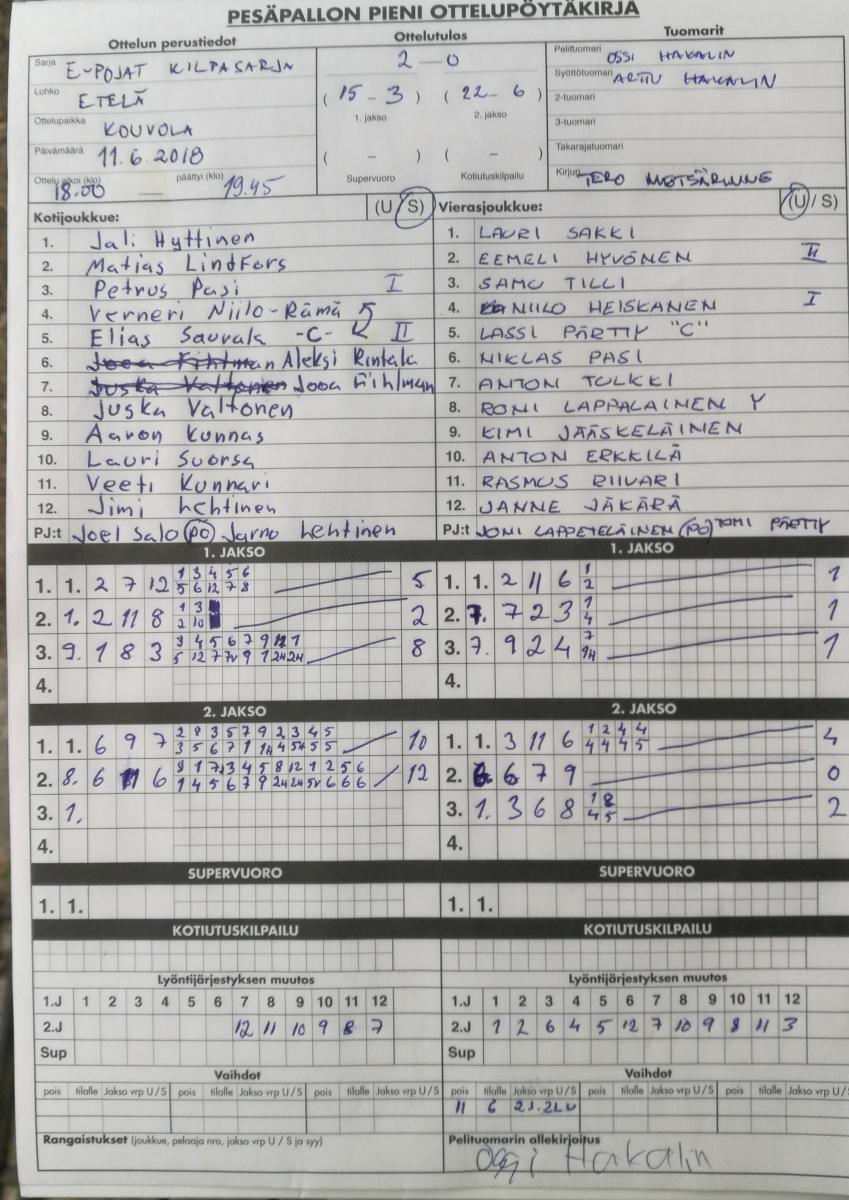 PESÄPALLON PIENI OTTELUPÖYTÄKIRJA
Ottelun perustiedot
Sarja E-POJAT KILPASARJA
Lohko ETELÄ
Ottelupaikka KOUVOLA
Päivämäärä 11.6.2018
Ottelu alkoi (klo) 18.00 — päättyi (klo) 19.45
Ottelutulos
2 – 0
( 15 – 3 ) ( 22 – 6 )
1. jakso 2. jakso
( – ) ( – )
Supervuoro Kotiutuskilpailu
Tuomarit
Pelituomari OSSI HAKALIN
Syöttötuomari ARTTU HAKALIN
2-tuomari
3-tuomari
Takarajatuomari
Kirjuri TERO
Kotijoukkue: (U / S)
1. Jali Hyttinen
2. Matias Lindfors
3. Petrus Pasi I
4. Verneri Niilo-Rämä
5. Elias Sauvala -C- II
6. Aleksi Rintala
7. Jooa Fihlman
8. Juska Valtonen
9. Aaron Kunnas
10. Lauri Suorsa
11. Veeti Kunnari
12. Jimi Lehtinen
PJ:t Joel Salo (PÖ) Jarno Lehtinen
Vierasjoukkue: (U / S)
1. LAURI SAKKI
2. EEMELI HYVÖNEN II
3. SAMU TILLI
4. NIILO HEISKANEN I
5. LASSI PÄRTTY "C"
6. NIKLAS PASI
7. ANTON TOLKKI
8. RONI LAPPALAINEN Y
9. KIMI JÄÄSKELÄINEN
10. ANTON ERKKILÄ
11. RASMUS RIIVARI
12. JANNE JÄKÄRÄ
PJ:t JONI LAPPETELÄINEN (PÖ) TOMI PÄRTTY
1. JAKSO
1. 1. 2 7 12 1 3 4 5 6 5
5 6 12 7 8
2. 1. 2 11 8 1 3 2
2 10
3. 9. 1 8 3 8
4.
1. JAKSO
1. 1. 2 11 6 1 1
2
2. 7. 7 2 3 1 1
4
3. 7. 9 2 4 7 1
4.
2. JAKSO
1. 1. 6 9 7 2 8 3 5 7 9 2 3 4 5 10
2. 8. 6 11 6 12
3. 1.
4.
2. JAKSO
1. 1. 3 11 6 1 2 4 4 4
4 4 4 5
2. 6. 6 7 9 0
3. 1. 3 6 8 1 8 2
4 5
4.
SUPERVUORO
1. 1.
SUPERVUORO
1. 1.
KOTIUTUSKILPAILU
KOTIUTUSKILPAILU
Lyöntijärjestyksen muutos
1.J 1 2 3 4 5 6 7 8 9 10 11 12
2.J 12 11 10 9 8 7
Sup
Lyöntijärjestyksen muutos
1.J 1 2 3 4 5 6 7 8 9 10 11 12
2.J 1 2 6 4 5 12 7 10 9 8 11 3
Sup
Vaihdot
pois tilalle Jakso vrp U / S pois tilalle Jakso vrp U / S pois tilalle Jakso vrp U / S
Vaihdot
pois tilalle Jakso vrp U / S pois tilalle Jakso vrp U / S pois tilalle Jakso vrp U / S
11 6 2J.2LU
Rangaistukset (joukkue, pelaaja nro, jakso vrp U / S ja syy)
Pelituomarin allekirjoitus
Ossi Hakalin